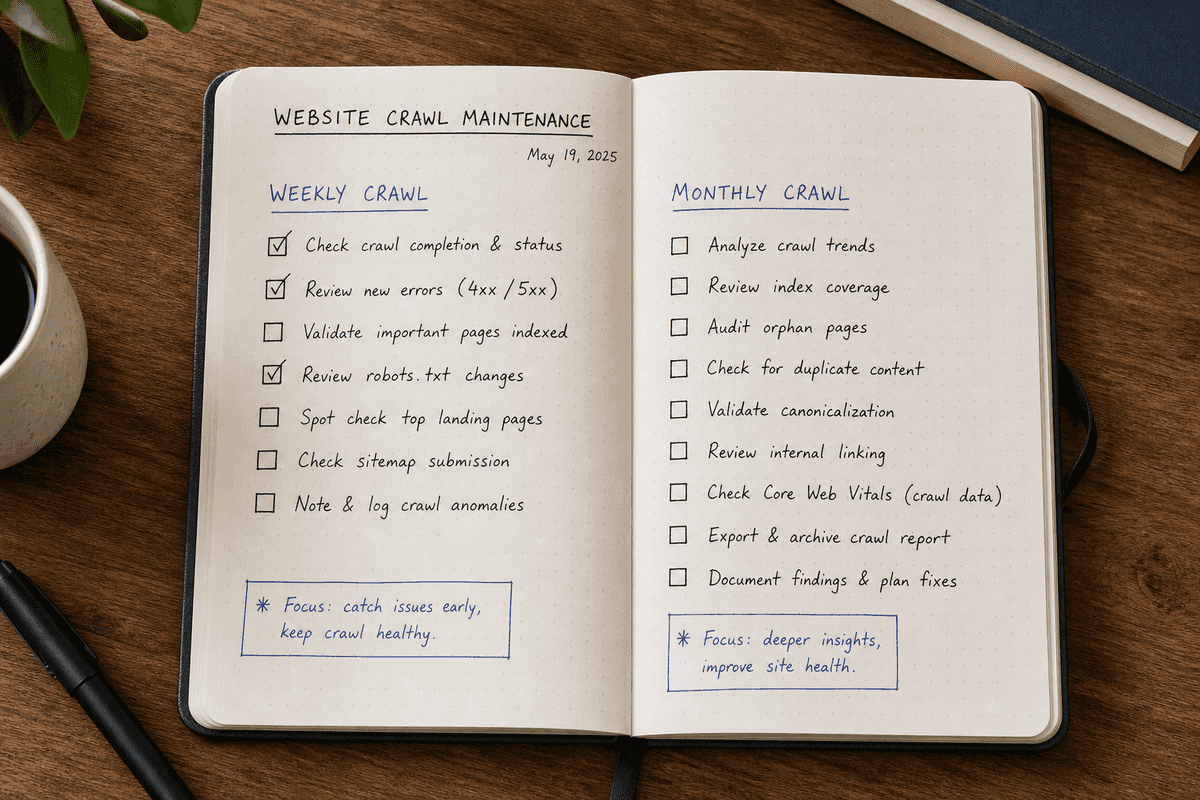 WEBSITE CRAWL MAINTENANCE
May 19, 2025
WEEKLY CRAWL
Check crawl completion & status
Review new errors (4xx / 5xx)
Validate important pages indexed
Review robots.txt changes
Spot check top landing pages
Check sitemap submission
Note & log crawl anomalies
* Focus: catch issues early,
keep crawl healthy.
MONTHLY CRAWL
Analyze crawl trends
Review index coverage
Audit orphan pages
Check for duplicate content
Validate canonicalization
Review internal linking
Check Core Web Vitals (crawl data)
Export & archive crawl report
Document findings & plan fixes
* Focus: deeper insights,
improve site health.